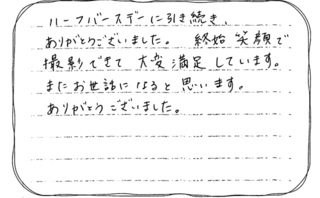 ハーフバースデーに引き続き、
ありがとうございました。 終始 笑顔で
撮影できて 大変 満足 しています。
またお世話になると 思います。
ありがとうございました。